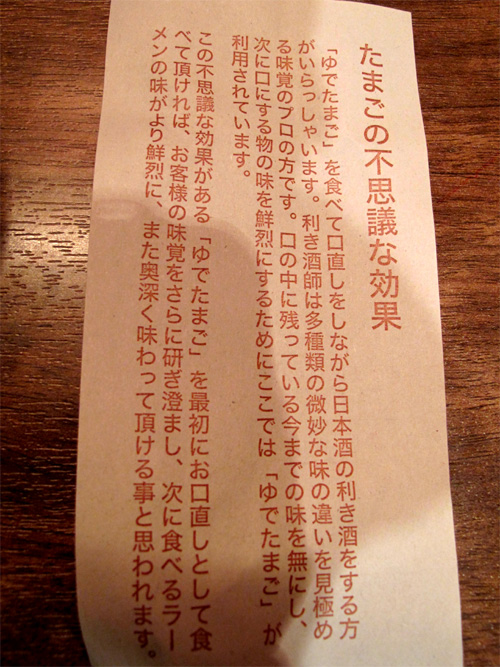 たまごの不思議な効果
「ゆでたまご」を食べて口直しをしながら日本酒の利き酒をする方
がいらっしゃいます。利き酒師は多種類の微妙な味の違いを見極め
る味覚のプロの方です。口の中に残っている今までの味を無にし、
次に口にする物の味を鮮烈にするためにここでは「ゆでたまご」が
利用されています。
この不思議な効果がある「ゆでたまご」を最初にお口直しとして食
べて頂ければ、お客様の味覚をさらに研ぎ澄まし、次に食べるラー
メンの味がより鮮烈に、また奥深く味わって頂ける事と思われます。